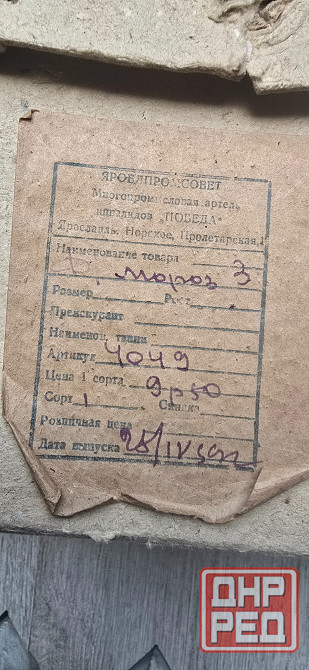 ЯРОБЛПРОМСОВЕТ
Многопромысловая артель
инвалидов "ПОБЕДА"
Ярославль, Норское, Пролетарская,1
Наименование товара
мороз 3
Размер Рост
Прейскурант
Наименов. ткани
Артикул 4049
Цена 1 сорта 9р50
Сорт 1 Скидка
Розничная цена
Дата выпуска 28/IV
ДНР
РЕД